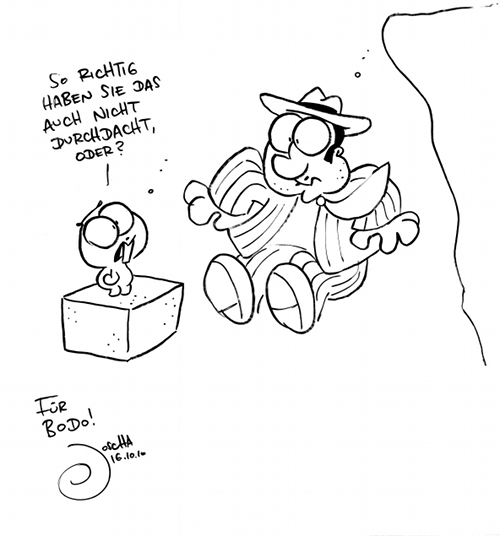 SO RICHTIG
HABEN SIE DAS
AUCH NICHT
DURCHDACHT,
ODER?
FÜR
BODO!
JOSCHA
16.10.10